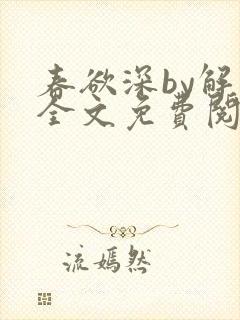 春欲深by解
全文免費閱
流嫣然